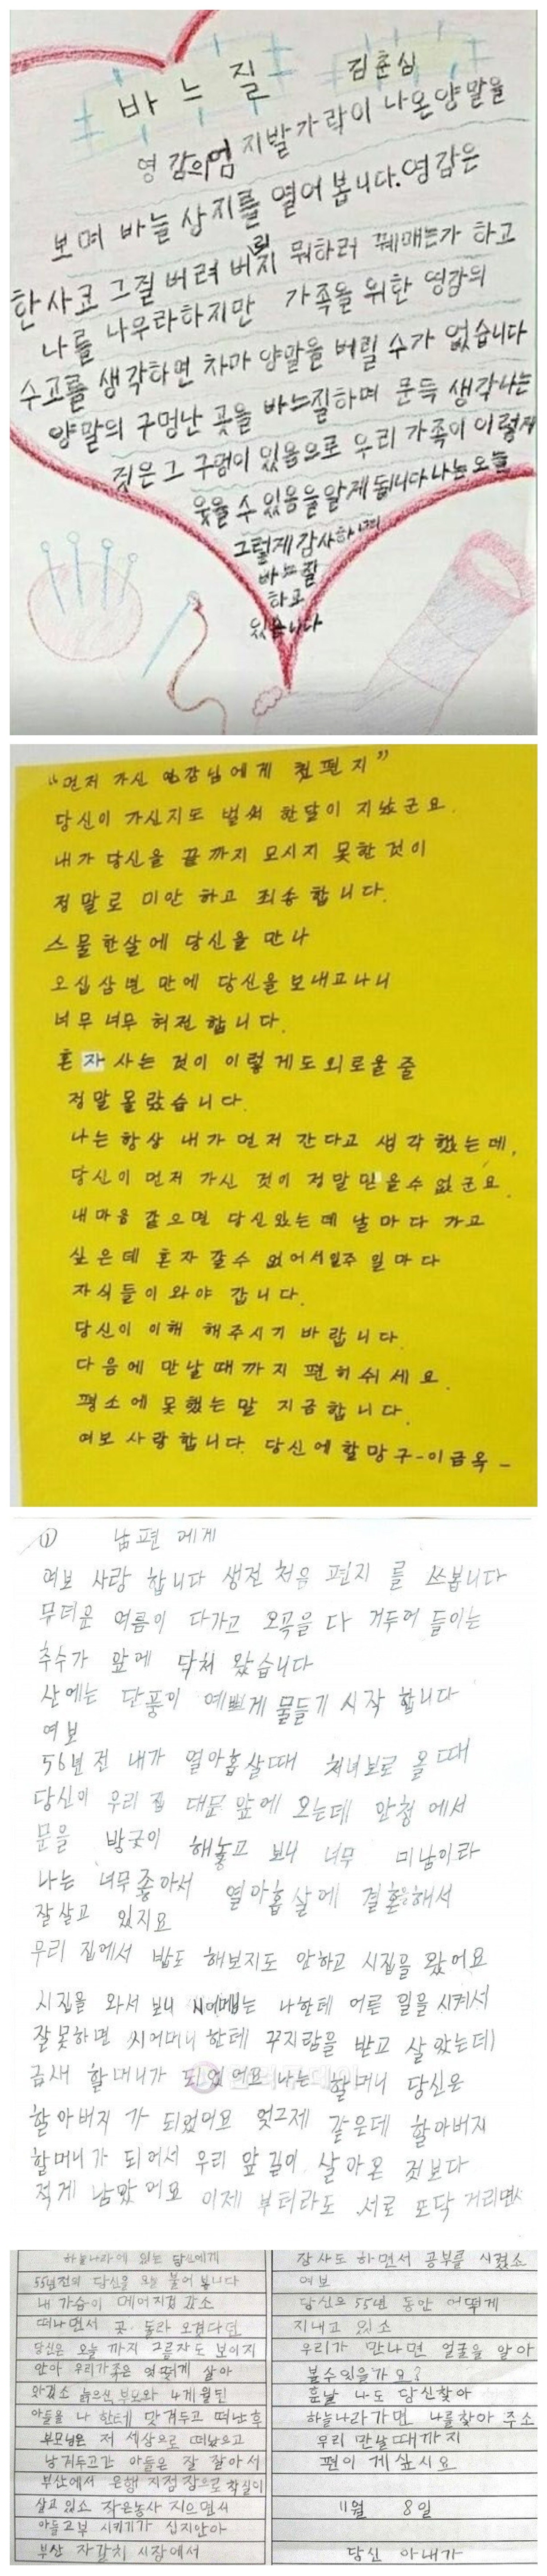 바느질
김춘심
영감의엄지발가락이 나온양말을
보며 바늘 상지를 열어 봅니다. 영감은
한사코 그걸 버려 버릴지 뭐하러 꿰매는가 하고
나를 나무라하지만 가족을 위한 영감의
수고를 생각하면 차마 양말을 버릴 수가 없습니다
양말의 구멍난 곳을 바느질하며 문득 생각나는
것은 그 구멍이 있음으로 우리 가족이 이렇게
웃을 수 있음을알게 됩니다 나는 오늘
그렇게 감사하며
바느질
하고
있습니다
"먼저 가신 영감님에게 첫편지"
당신이 가신지도 벌써 한달이 지났군요.
내가 당신을 끝까지 모시지 못한것이
정말로 미안 하고 죄송합니다.
스물한살에 당신을 만나
오십삼년 만에 당신을 보내고나니
너무 너무 허전합니다.
혼자 사는 것이 이렇게도외로울 줄
정말 몰랐습니다.
나는 항상 내가 먼저 간다고 생각했는데,
당신이 먼저 가신 것이 정말믿을수 없군요.
내마음 같으면 당신있는데 날마다 가고
싶은데 혼자 갈수 없어서일주 일마다
자식들이 와야 갑니다.
당신이 이해 해주시기 바랍니다.
다음에 만날때까지 편히쉬세요.
평소에 못했는말 지금합니다.
여보 사랑합니다. 당신에할망구-이금옥-
① 남편에게
여보 사랑 합니다 생전처음 편지를 쓰봅니다
무더운 여름이 다가고 오곡을 다 거두어 들이는
추수가 앞에 닥쳐 왔습니다
산에는 단풍이 예쁘게 물들기 시작 합니다
여보
56년전 내가 열아홉살때 처녀보로 올때
당신이 우리 집 대문앞에 오는데 안청에서
문을 방굿이 해놓고 보니 너무 미남이라
나는 너무좋아서 열아홉살에 결혼해서
잘살고 있지요
우리 집에서 밥도 해보지도 안하고 시집을 왔어요
시집을 와서 보니 시어메는 나한테 어른 일을 시켜서
잘못하면 시어머니한테 꾸지람을 받고 살았는데
금새 할머니가 되었어요 나는 할머니 당신은
할아버지가 되었어요 엊그제 같은데 할아버지
할머니가 되어서 우리 앞길이 살아온 것보다
적게 남았어요 이제 부터라도 서로 또닥거리면서
하늘나라에 있는 당신에게
55년전의 당신을 오늘 불어 봅니다
내 가슴이 메어지겠 았소
떠나면서 곳. 돌라 오겠다던
당신은 오늘 까지 그름자도 보이지
안아 우리가족은 엇떻게 살아
왔겠소 늙으신 부모와 4개월된
아들을 나 한테 맛겨두고 떠난후
부모님은 저 세상으로 떠났으고
남겨두고간 아들은 잘 잘아서
부산에서 은행 지점장으로 착실이
살고있소 작은농사 지으면서
아들고부 시키기가 십지안아
부산 자갈치 시장에서
잡사도 하면서 공부를 시켰소
여보
당신으 55년 동안 어떻게
지내고 있소
우리가 만나면 얼굴을 알아
볼수있을가요?
훗날 나도 당신찾아
하늘나라가면 나를찾아 주소
우리 만날때까지
편이 게싶시요
11월 8일
당신 아내가